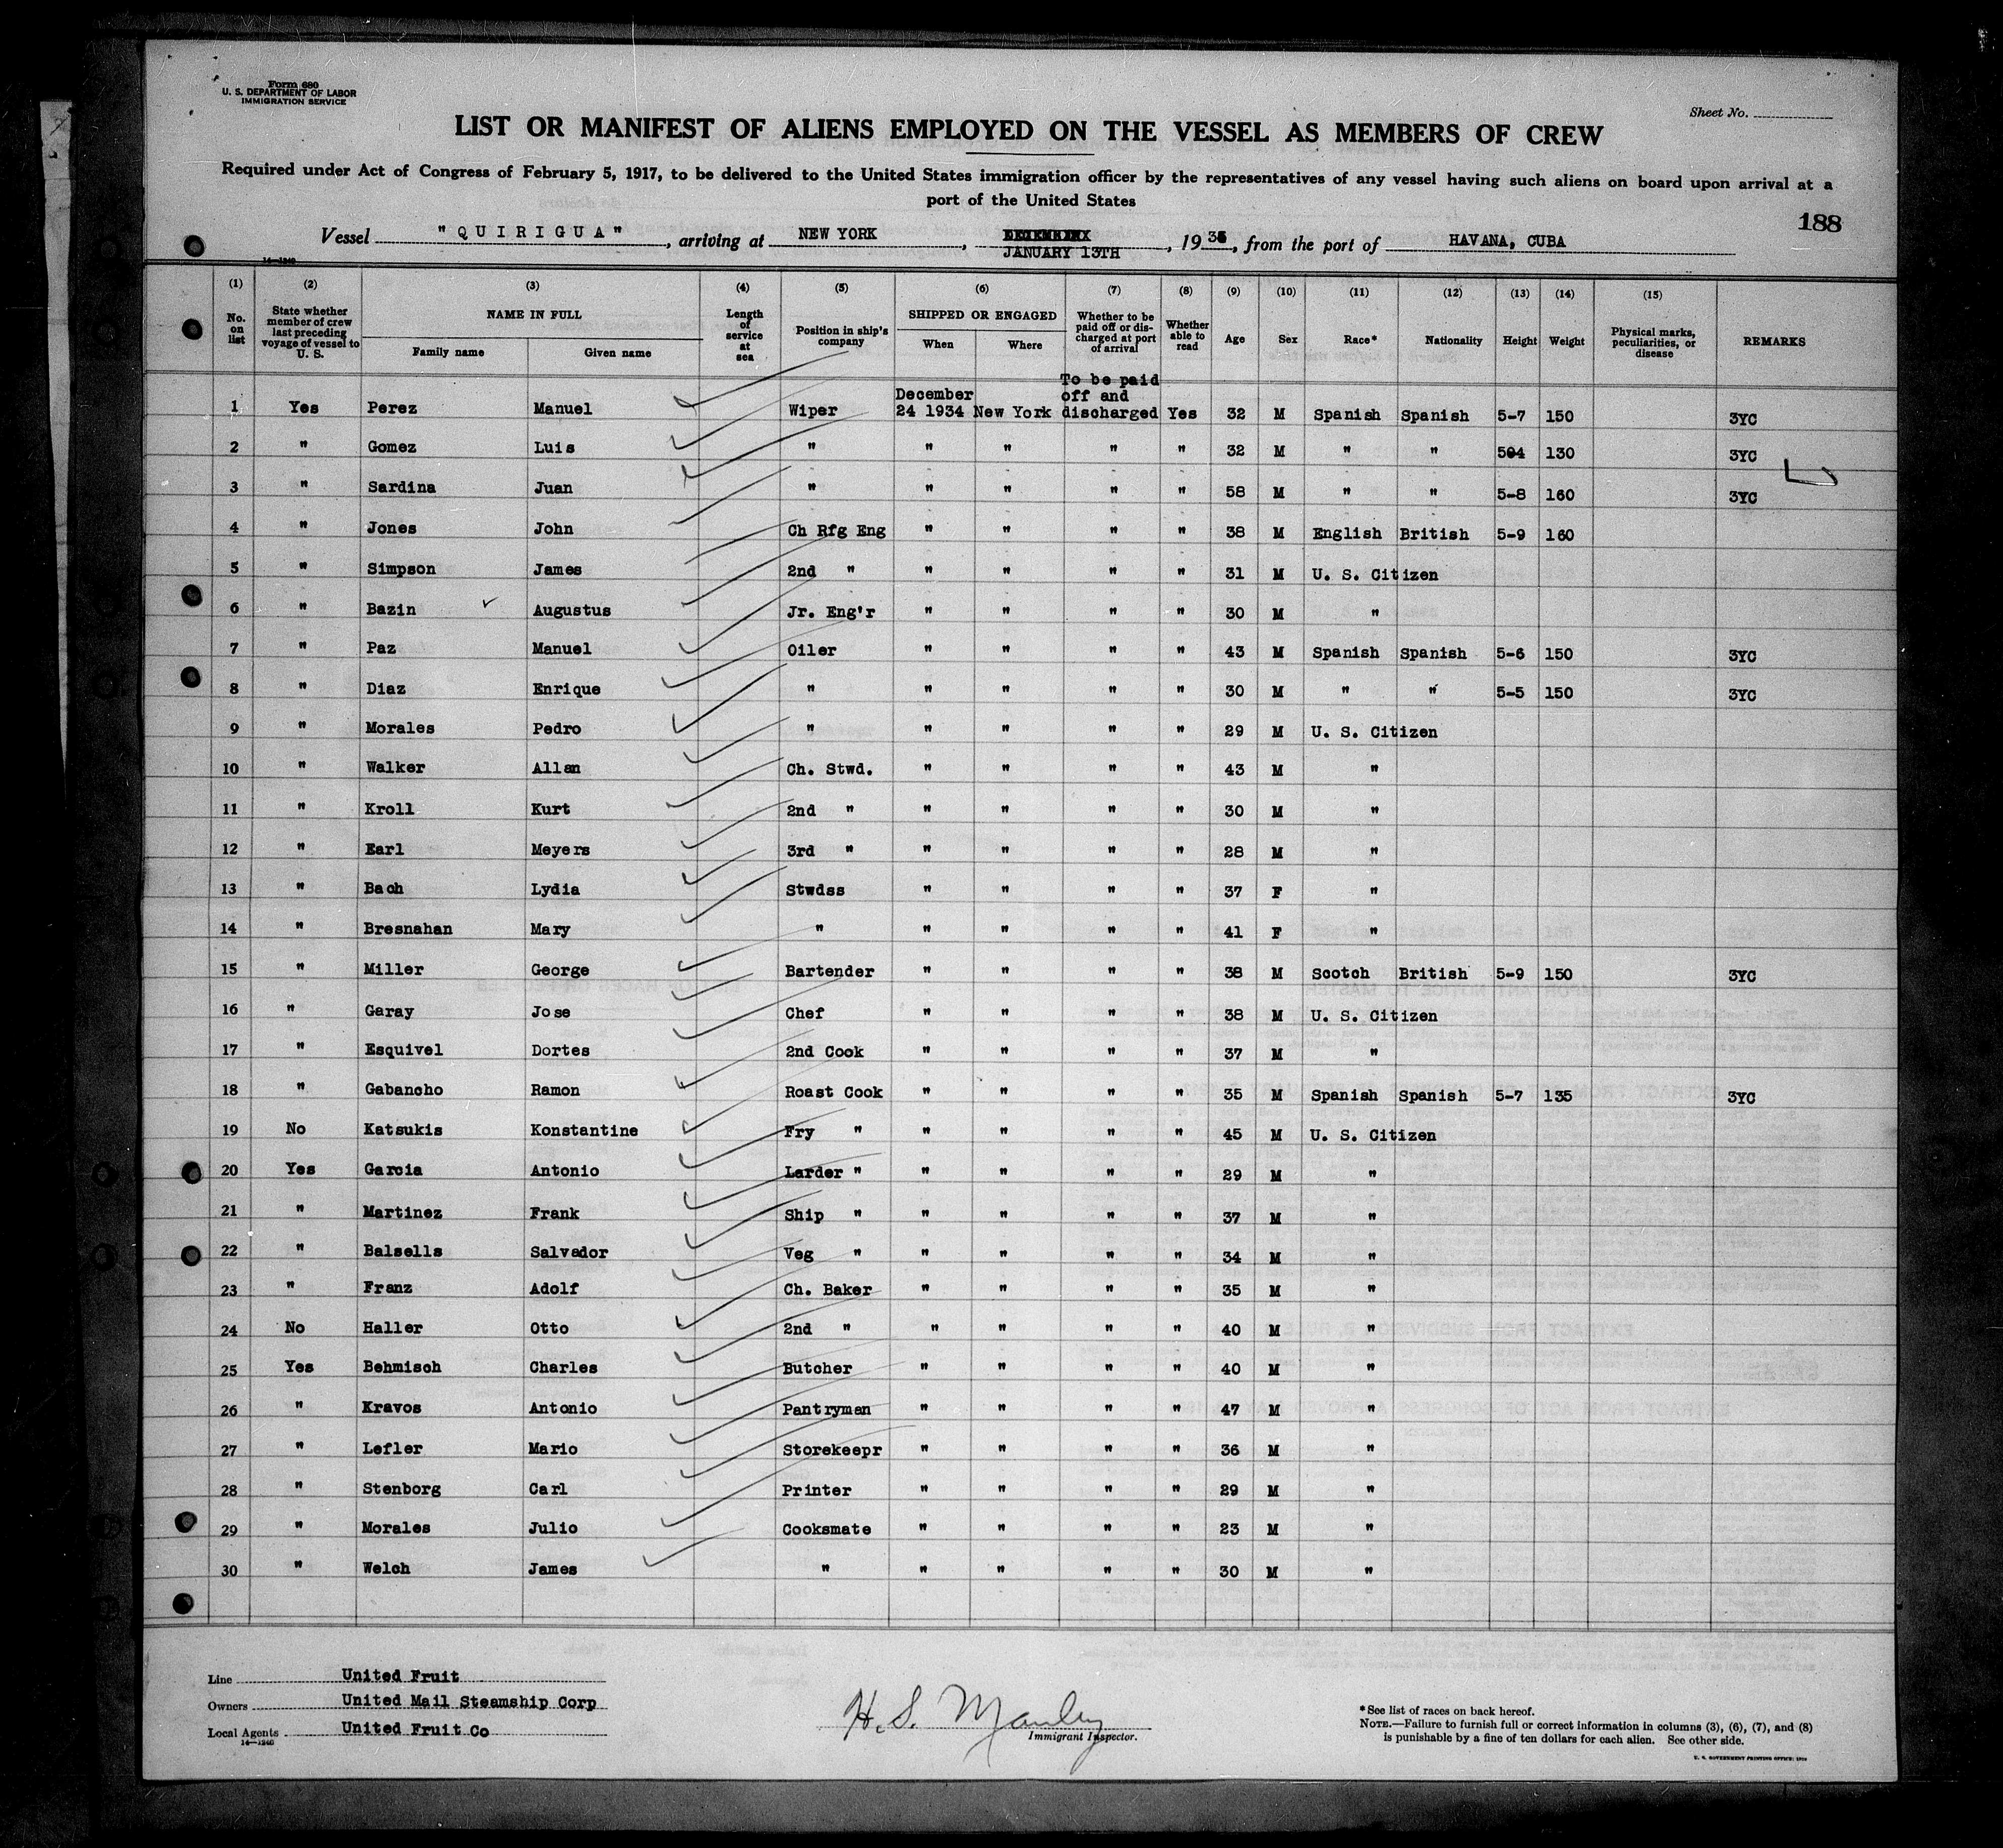 Form 680
U. S. DEPARTMENT OF LABOR
IMMIGRATION SERVICE
Sheet No.
LIST OR MANIFEST OF ALIENS EMPLOYED ON THE VESSEL AS MEMBERS OF CREW
Required under Act of Congress of February 5, 1917, to be delivered to the United States immigration officer by the representatives of any vessel having such aliens on board upon arrival at a
port of the United States
188
Vessel "QUIRIGUA", arriving at NEW YORK, JANUARY 13TH, 1935, from the port of HAVANA, CUBA
14—1240
(1) (2) (3) (4) (5) (6) (7) (8) (9) (10) (11) (12) (13) (14) (15)
No. on list State whether member of crew last preceding voyage of vessel to U. S. NAME IN FULL Family name Given name Length of service at sea Position in ship's company SHIPPED OR ENGAGED When Where Whether to be paid off or discharged at port of arrival Whether able to read Age Sex Race* Nationality Height Weight Physical marks, peculiarities, or disease REMARKS
1 Yes Perez Manuel Wiper December 24 1934 New York To be paid off and discharged Yes 32 M Spanish Spanish 5-7 150 3YC
2 " Gomez Luis " " " " " 32 M " " 504 130 3YC
3 " Sardina Juan " " " " " 58 M " " 5-8 160 3YC
4 " Jones John Ch Rfg Eng " " " " 38 M English British 5-9 160
5 " Simpson James 2nd " " " " " 31 M U. S. Citizen
6 " Bazin Augustus Jr. Eng'r " " " " 30 M "
7 " Paz Manuel Oiler " " " " 43 M Spanish Spanish 5-6 150 3YC
8 " Diaz Enrique " " " " " 30 M " " 5-5 150 3YC
9 " Morales Pedro " " " " " 29 M U. S. Citizen
10 " Walker Allan Ch. Stwd. " " " " 43 M "
11 " Kroll Kurt 2nd " " " " " 30 M "
12 " Earl Meyers 3rd " " " " " 28 M "
13 " Bach Lydia Stwdss " " " " 37 F "
14 " Bresnahan Mary " " " " " 41 F "
15 " Miller George Bartender " " " " 38 M Scotch British 5-9 150 3YC
16 " Garay Jose Chef " " " " 38 M U. S. Citizen
17 " Esquivel Dortes 2nd Cook " " " " 37 M "
18 " Gabancho Ramon Roast Cook " " " " 35 M Spanish Spanish 5-7 135 3YC
19 No Katsukis Konstantine Fry " " " " " 45 M U. S. Citizen
20 Yes Garcia Antonio Larder " " " " " 29 M "
21 " Martinez Frank Ship " " " " " 37 M "
22 " Balsells Salvador Veg " " " " " 34 M "
23 " Franz Adolf Ch. Baker " " " " 35 M "
24 No Haller Otto 2nd " " " " " 40 M "
25 Yes Behmisch Charles Butcher " " " " 40 M "
26 " Kravos Antonio Pantryman " " " " 47 M "
27 " Lefler Mario Storekeepr " " " " 36 M "
28 " Stenborg Carl Printer " " " " 29 M "
29 " Morales Julio Cooksmate " " " " 23 M "
30 " Welch James " " " " " 30 M "
Line United Fruit
Owners United Mail Steamship Corp
Local Agents United Fruit Co
14—1240
H. S. Manley
Immigrant Inspector.
*See list of races on back hereof.
NOTE.—Failure to furnish full or correct information in columns (3), (6), (7), and (8)
is punishable by a fine of ten dollars for each alien. See other side.
U. S. GOVERNMENT PRINTING OFFICE: